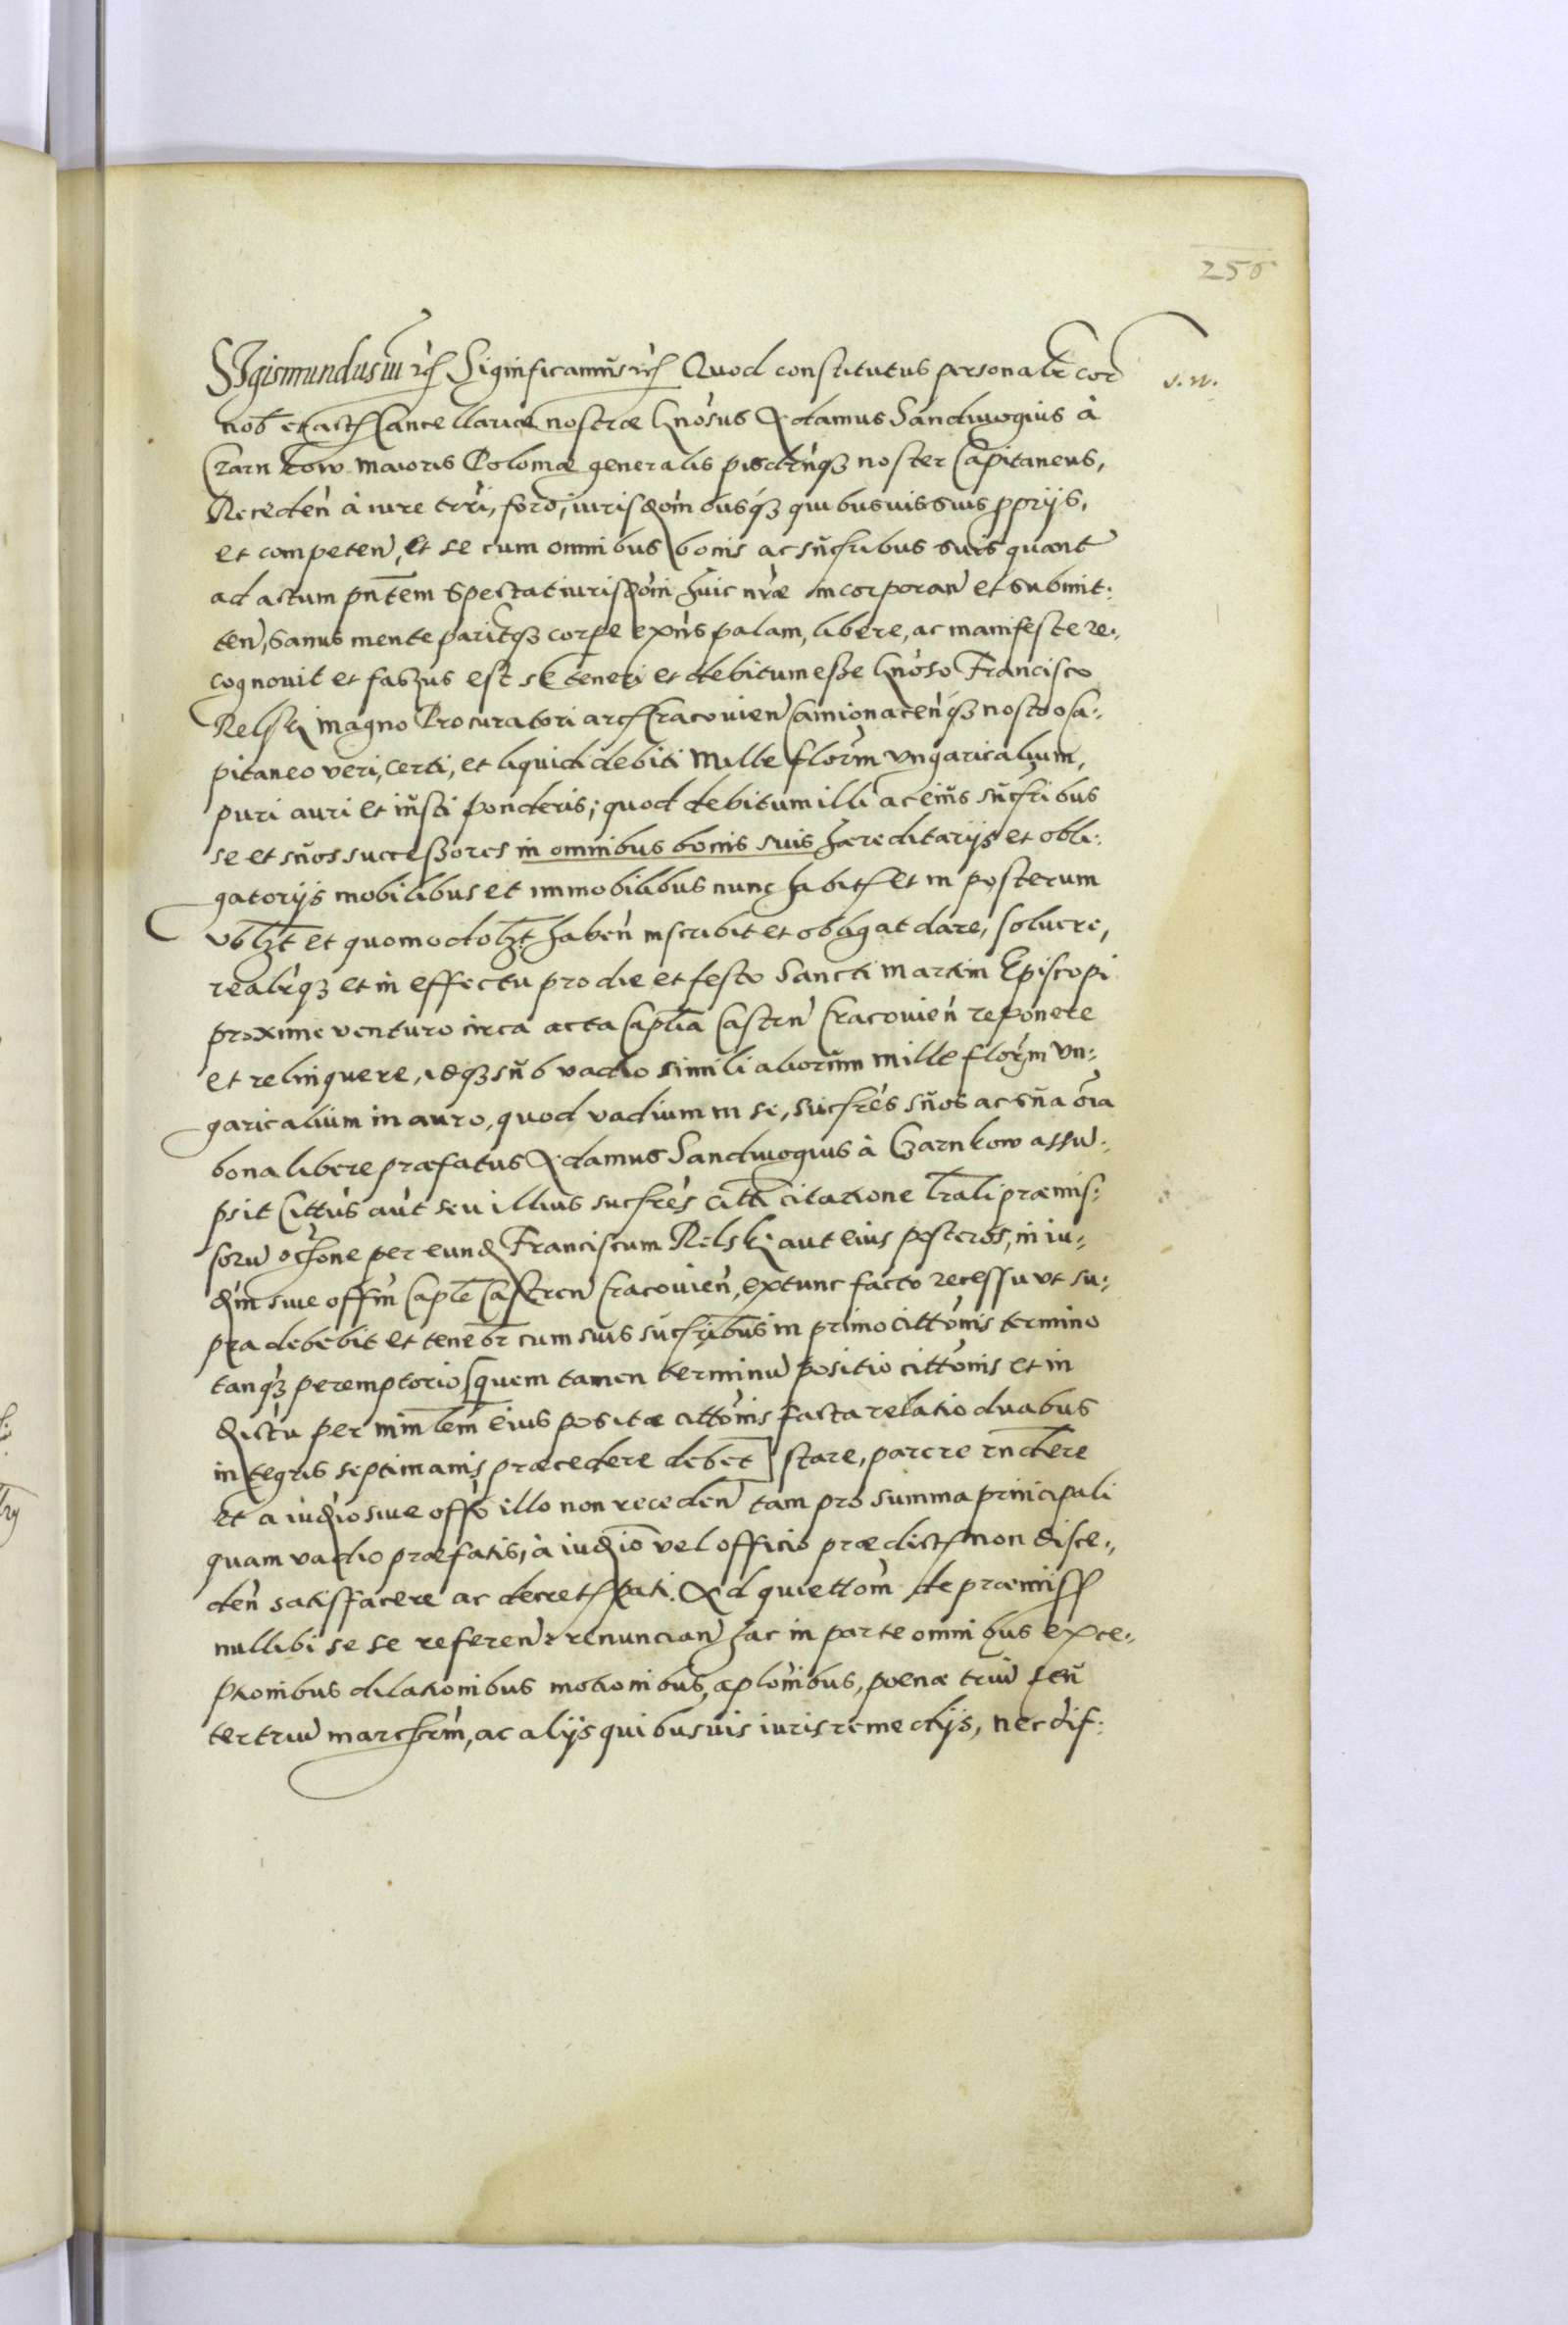 256
Sigismundus iii etc̃ Significamus etc̃ Quod constitutus personalr̃ cor̃ s. n.
nob̃ et act̃ Cancellariæ nostræ Gn̄osus Adamus Sandiuogius à
Czarnkow maioris Poloniæ generalis pisdrn̄qȝ noster Capitaneus,
Receden̄ à iure trr̄i, foro, iurisdōinibusqȝ quibusuis suis ꝓprijs,
et competen̄, et se cum omnibus bonis ac sucr̄ibus suis quant̃
ad actum pn̄tem spectat iurisdōni huic nr̄æ incorporan̄ et submit:
ten̄, sanus mente paritʳqȝ corpe exn̄s palam, libere, ac manifeste re:
cognouit et faszus est se teneri et debitum esse Gn̄oso Francisco
Relski magno Procuratori arc̃ Cracouien̄ Camionacen̄qȝ nostro Ca:
pitaneo veri, certi, et liquidi debiti Mille flor̄m vngaricalium,
puri auri et iusti ponderis; quod debitum illi ac eius sucr̄ibus
se et suos successores in omnibus bonis suis hæreditarijs et obli:
gatorijs mobilibus et immobilibus nunc habit̃ et in posterum
vblȝt et quomodolȝt haben̄ inscribit et obligat dare, soluere,
realr̄qȝ et in effectu pro die et festo Sancti Martini Episcopi
proxime venturo circa acta Capl̄ia Castren̄ Cracouien̄ reponere
et relinquere, idqȝ sub vadio simili aliorum mille flor̄m vn:
garicalium in auro, quod vadium in se, sucr̄es suos ac sua oīa
bona libere præfatus Adamus Sandiuogius à Czarnkow assu:
psit Cittūs aut̃ seu illius sucr̄es citt̄i citatione lr̄ali præmis:
soru̅ oc̄hone per eund̃ Franciscum Relski aut eius posteros, in iu:
d̄m siue off̄m Capl̄e Castren̄ Cracouien̄, extunc facto recessu vt su:
pra debebit et tenebr̃ cum suis sucr̄ibus in primo cittōnis termino
tanqȝ peremptorio [quem tamen terminu̅ positio cittōnis et in
dictu per min̄lem eius positæ cittōnis facta relatio duabus
integris septimanis præcedere debet] stare, parere rn̄dere
et a iud̄io siue off̄o illo non receden̄ tam pro summa principali
quam vadio præfatis, à iud̄io vel officio prædict̃ non disce:
den̄ satisfacere ac decret̃ pati. Ad quiettōm de præmiss̃
nullibi sese referen̄ renuncian̄ hac in parte omnibus exce:
ptionibus dilationibus motionibus, aplōnibus, poenæ triu̅ seu
ter triu̅ march̄rm, ac alijs quibusuis iuris remedijs, nec dif: